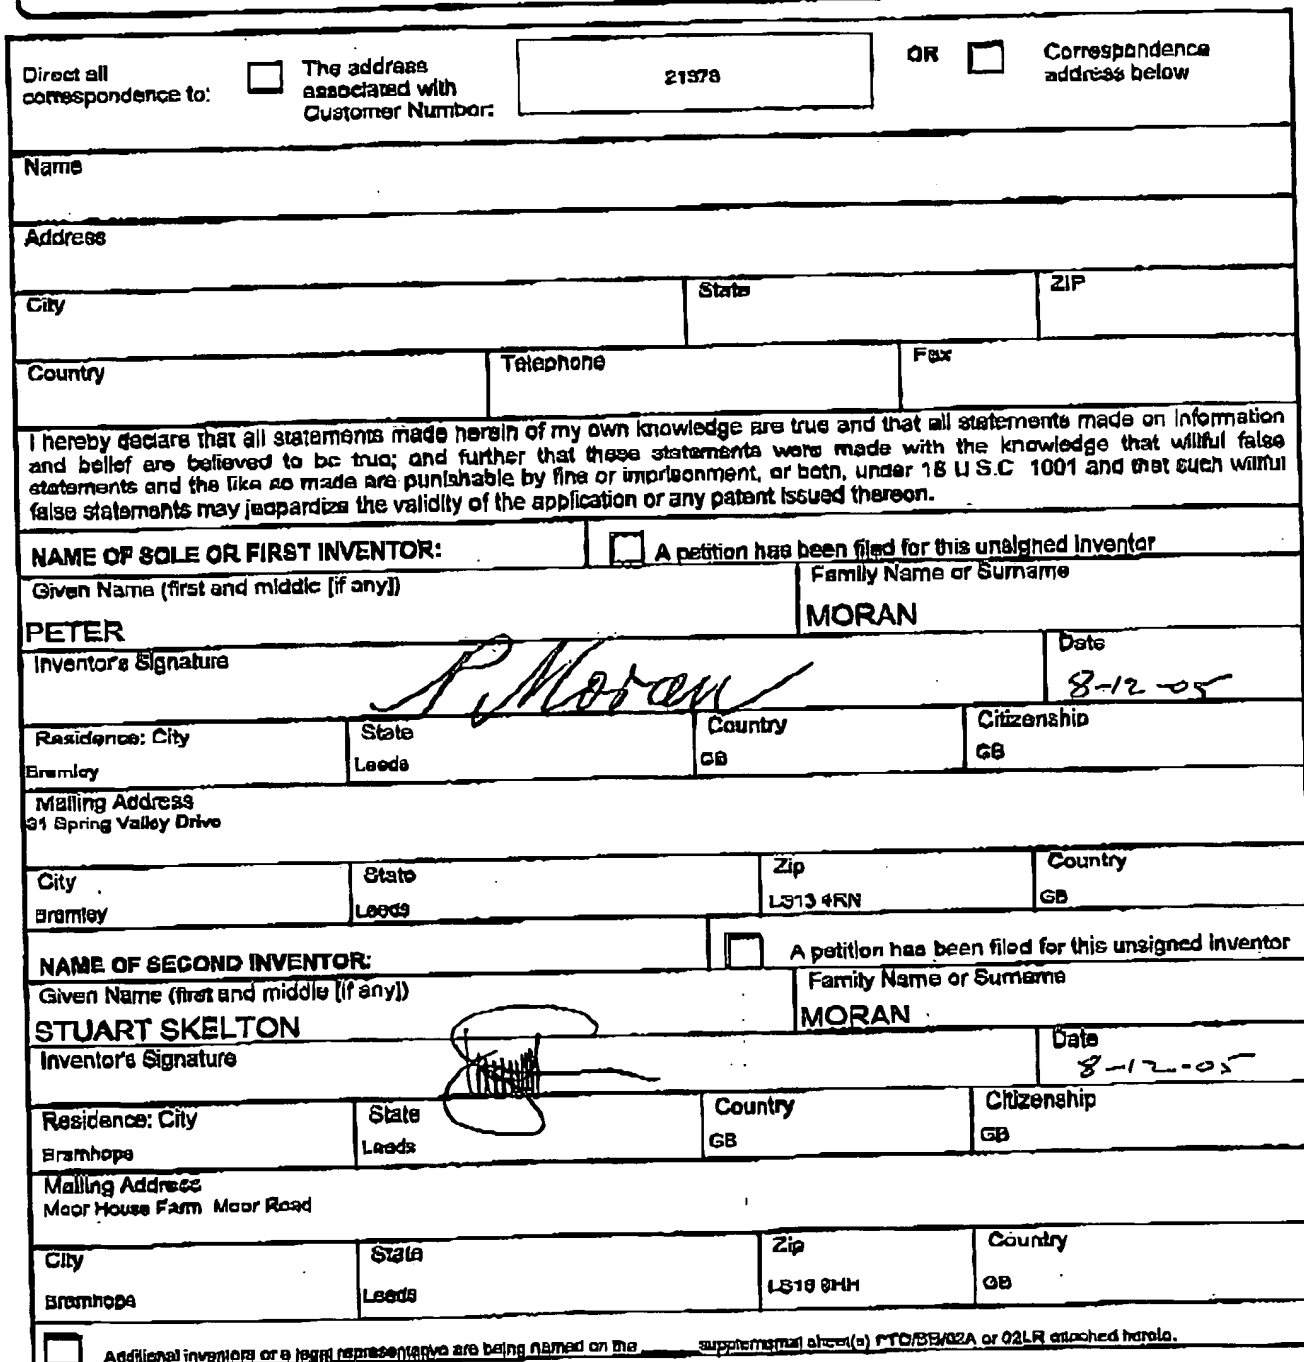 Direct all correspondence to:
The address associated with Customer Number:
21378
OR
Correspondence address below
Name
Address
City
State
ZIP
Country
Telephone
Fax
I hereby declare that all statements made herein of my own knowledge are true and that all statements made on information
and belief are believed to be true; and further that these statements were made with the knowledge that willful false
statements and the like so made are punishable by fine or imprisonment, or both, under 18 U S.C 1001 and that such willful
false statements may jeopardize the validity of the application or any patent issued thereon.
NAME OF SOLE OR FIRST INVENTOR:
A petition has been filed for this unsigned inventor
Given Name (first and middle [if any])
Family Name or Surname
PETER
MORAN
Inventor's Signature
P. Moran
Date
8-12-05
Residence: City
State
Country
Citizenship
Bramley
Leeds
GB
GB
Mailing Address
31 Spring Valley Drive
City
State
Zip
Country
Bramley
Leeds
LS13 4RN
GB
NAME OF SECOND INVENTOR:
A petition has been filed for this unsigned inventor
Given Name (first and middle [if any])
Family Name or Surname
STUART SKELTON
MORAN
Inventor's Signature
Date
8-12-05
Residence: City
State
Country
Citizenship
Bramhope
Leeds
GB
GB
Mailing Address
Moor House Farm Moor Road
City
State
Zip
Country
Bramhope
Leeds
GB
Additional inventors or a legal representative are being named on the ____ supplemental sheet(s) PTO/SB/02A or 02LR attached hereto.